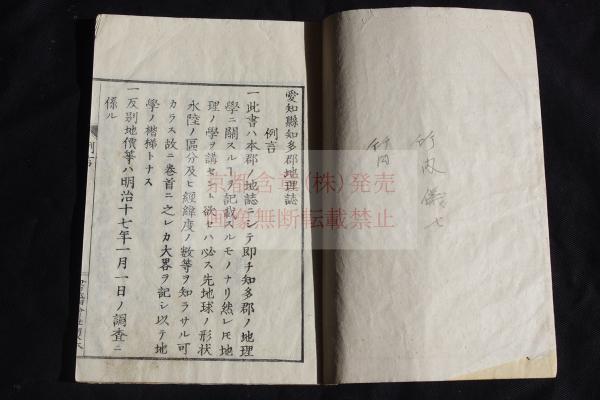 竹内
愛知縣知多郡地理誌
例言
一此書ハ本郡ノ地誌ニシテ即チ知多郡ノ地理
學ニ關スルヿヲ記載スルモノナリ然レ𪜈地
理ノ學ヲ講セント欲セハ必ス先地球ノ形状
水陸ノ區分及ヒ經緯度ノ數等ヲ知ラサル可
カラス故ニ卷首ニ之レカ大畧ヲ記シ以テ地
學ノ楷梯トナス
一反別地價等ハ明治十七年一月一日ノ調査ニ
係ル
例言
京都含章(株)発売
画像無断転載禁止